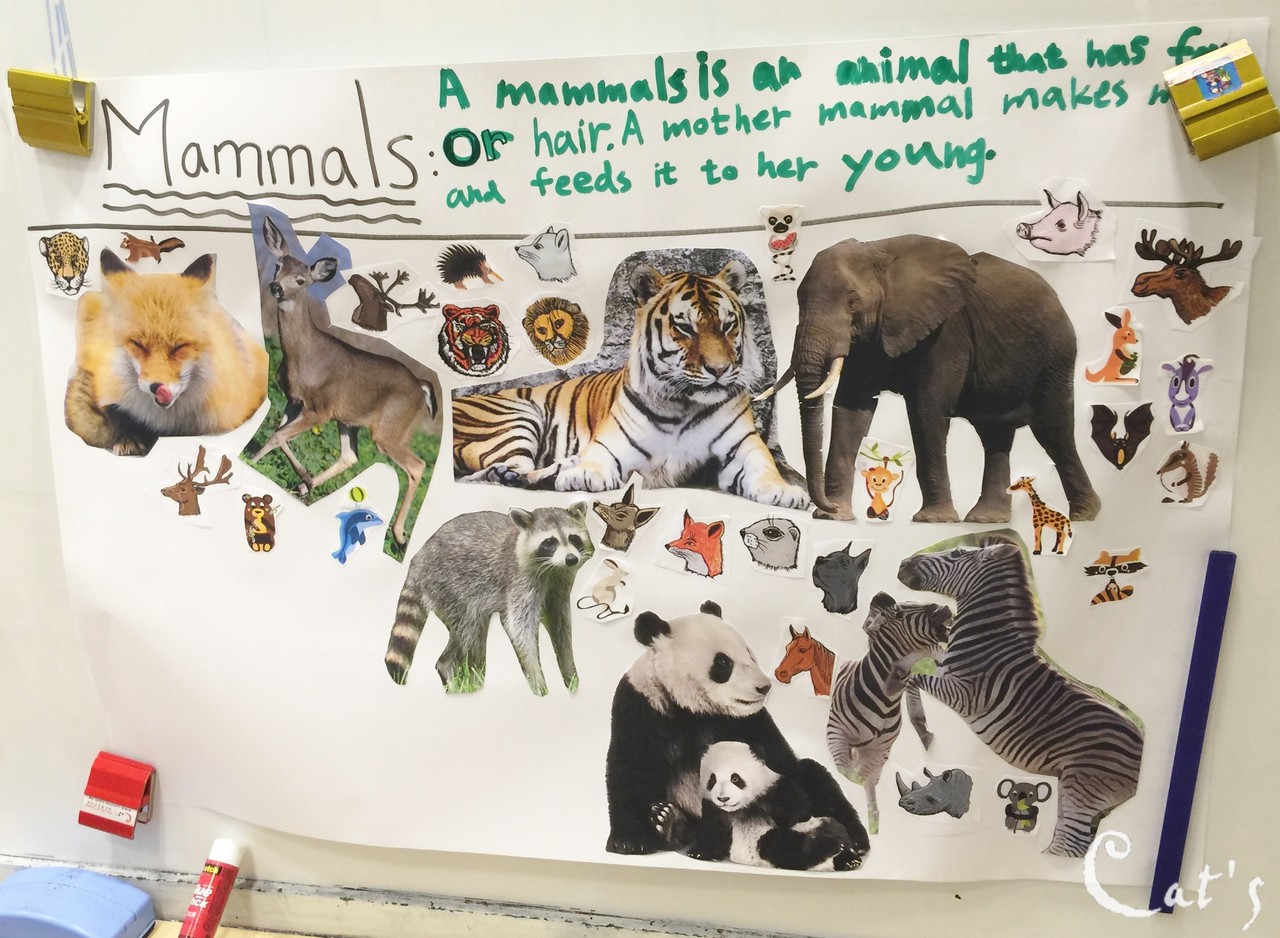 Mammals:
A mammals is an animal that has
or hair. A mother mammal makes
and feeds it to her young.
Cat's